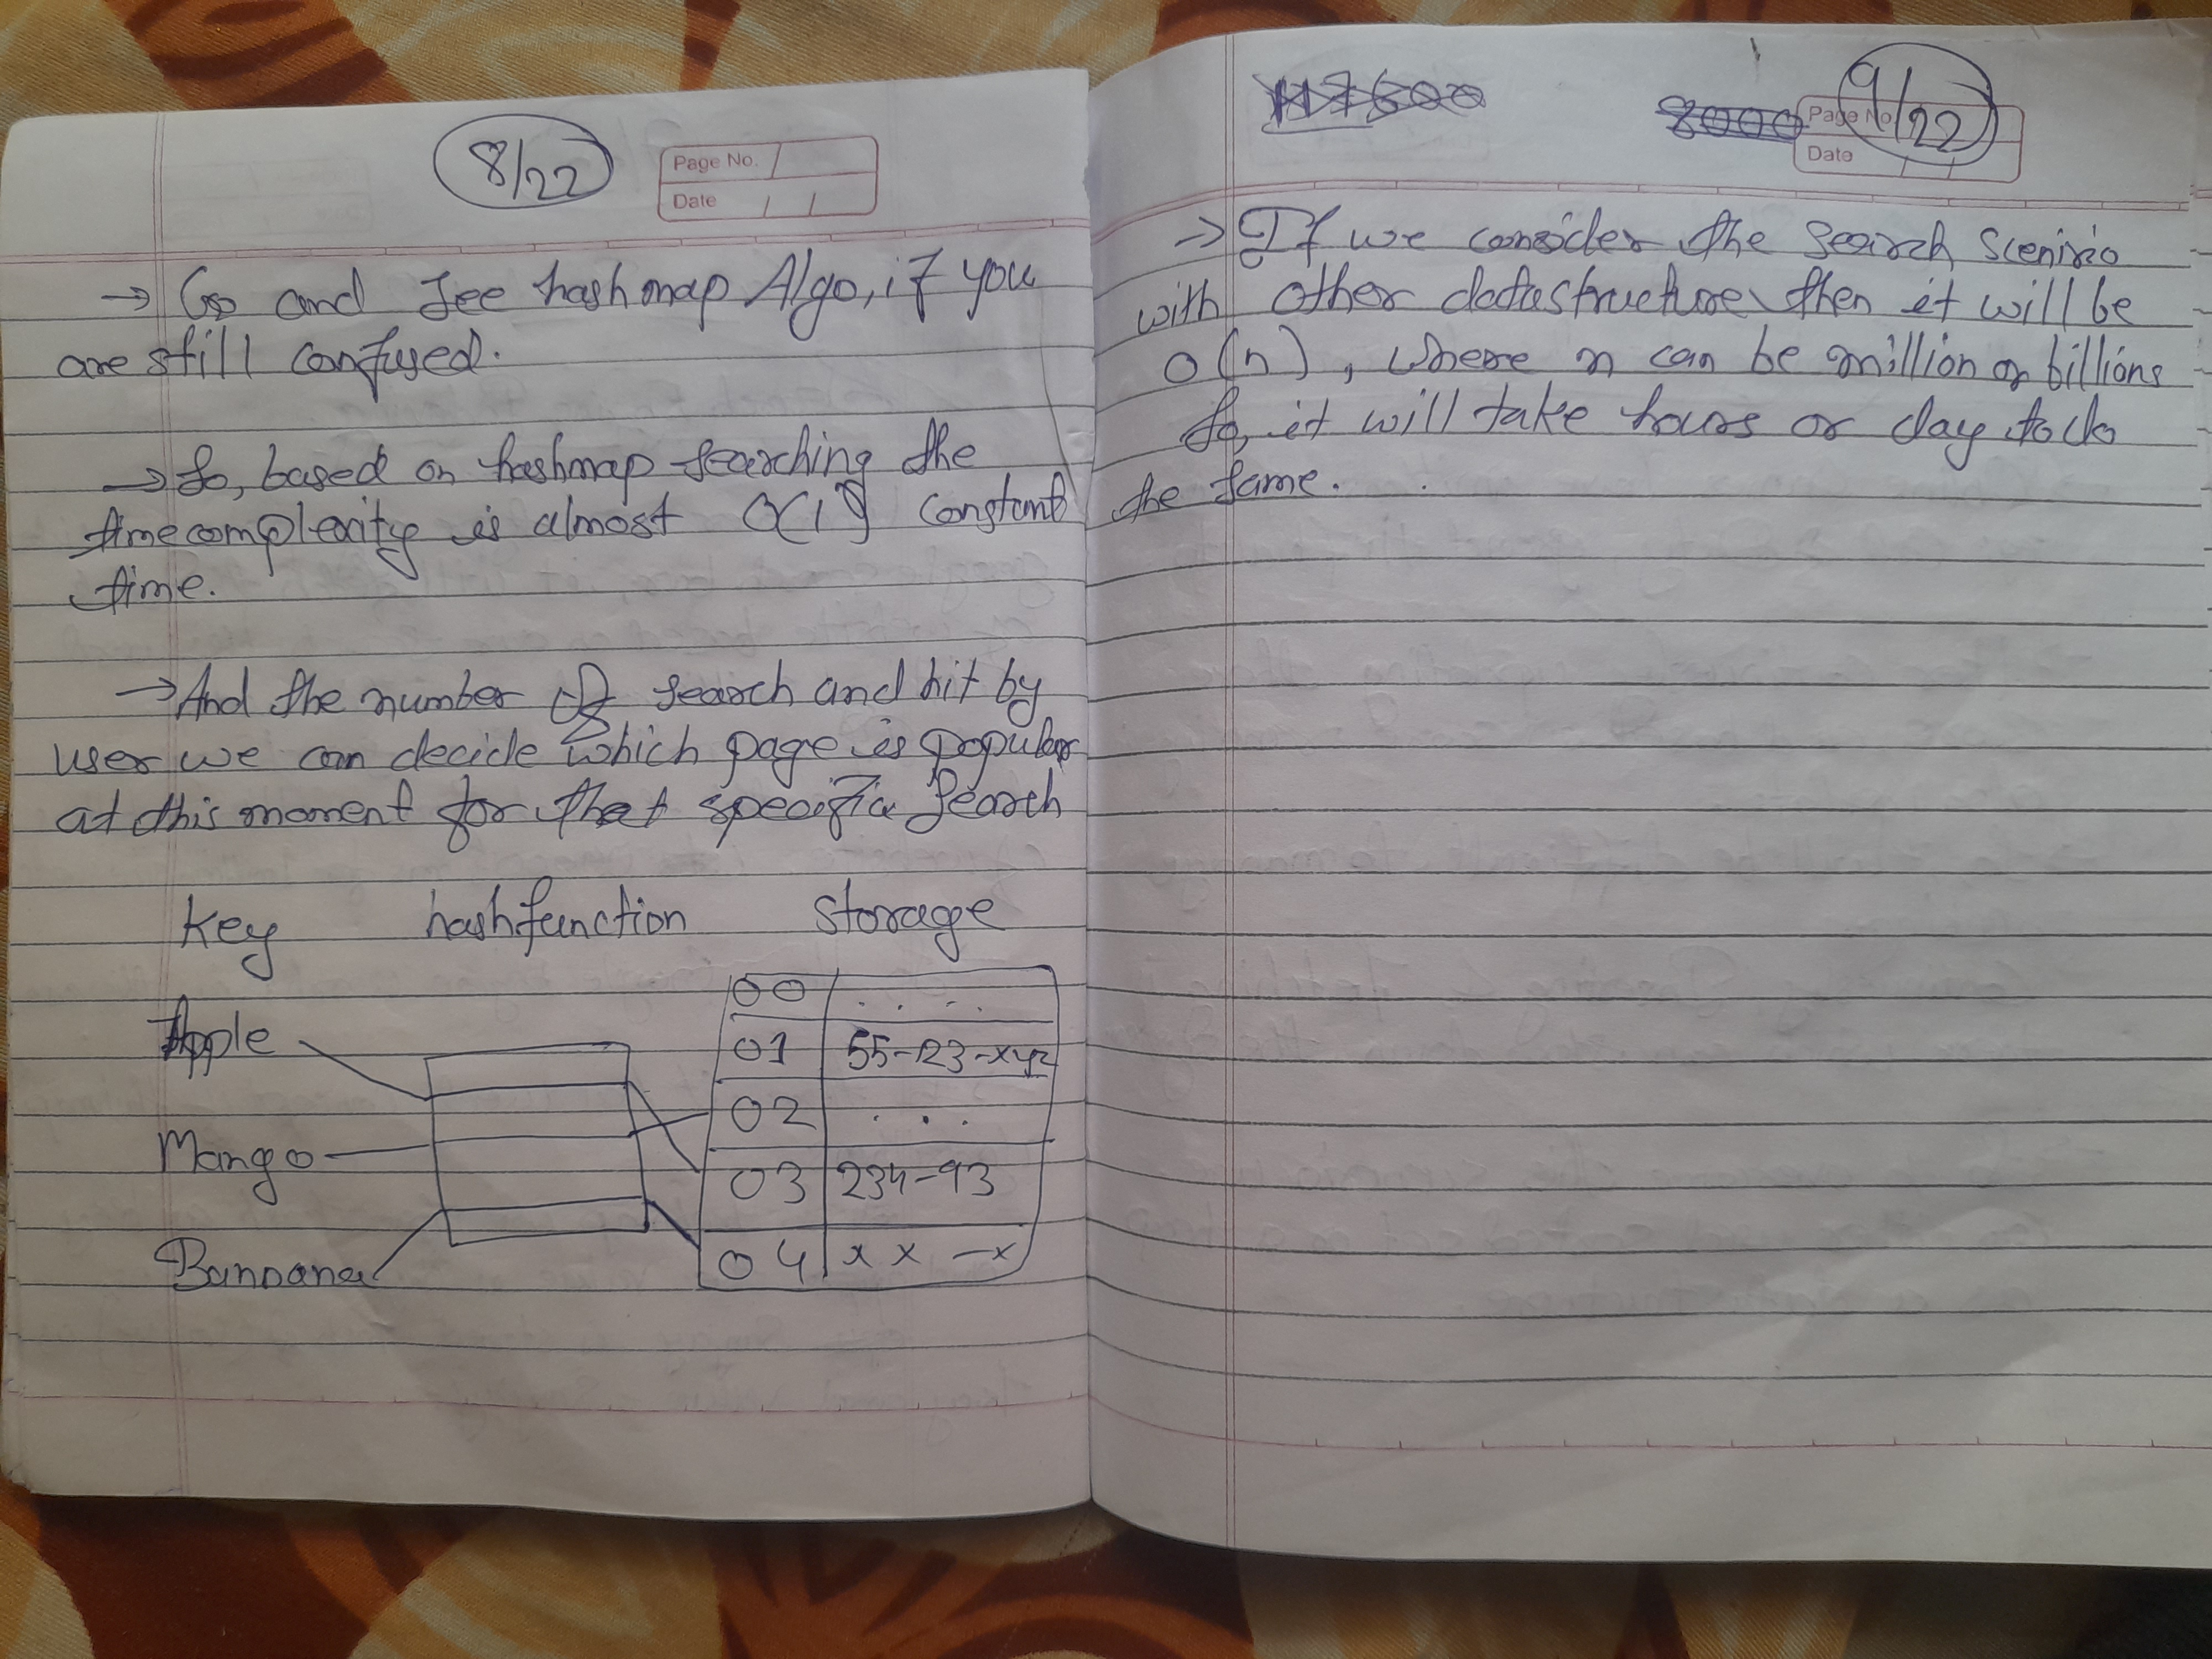 8/22
Page No.
Date / /
→ Go and See hashmap Algo, if you
are still confused.
→ So, based on hashmap searching the
time complexity is almost O(1) constant
time.
→ And the number of search and hit by
user we can decide which page is popular
at this moment for that specific search
Key hashfunction Storage
Apple
Mango
Bannana
00 . . .
01 55-123-xyz
02 . . .
03 234-93
04 x x - x
Page No.
Date
9/22
→ If we consider the search scenirio
with other datastructure, then it will be
O(n), where n can be million or billions
So, it will take hours or day to do
the same.